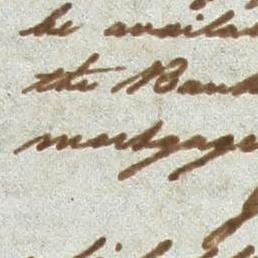 be availab
the Bank
mortgage